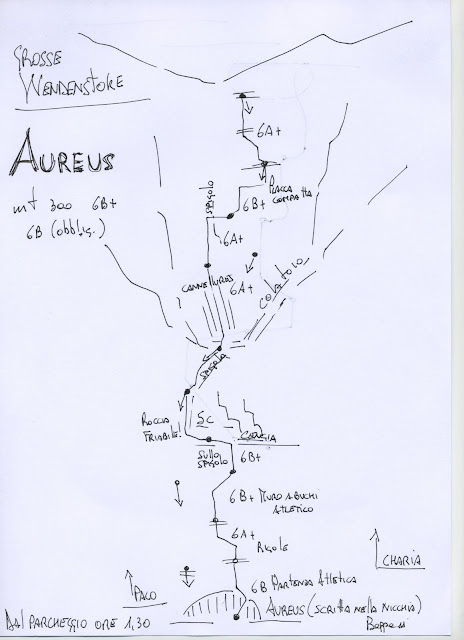 GROSSE
WENDENSTOKE
AUREUS
mt 300 6B+
6B (obblig.)
6A+
PLACCA
COMPATTA
SPIGOLO
6B+
6A+
CANNELLURES
6A+
COLATOIO
SPIGOLO
ROCCIA
FRIABILE!
5C
CENGIA
SULLO
SPIGOLO
6B+
6B+ MURO A BUCHI
ATLETICO
6A+
RIGOLE
6B PARTENZA ATLETICA
PACO
CHARIA
AUREUS (SCRITTA NELLA NICCHIA)
DAL PARCHEGGIO ORE 1,30